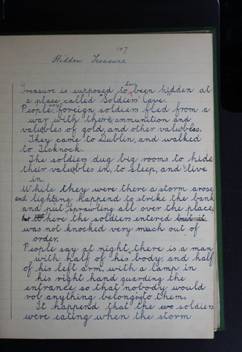 147
Hidden Treasure
Treasure is supposed to been hidden at
a place called Soldiers Cave.
People foreign soldiers fled from a
war with there ammunition and
valubles of gold and other valubles.
They came to Dublin, and walked
to Ticknock.
The soldiers dug big rooms to hide
their valubles in, to sleep, and live
in
While they were there a storm arose
and lighting happened to strike the bank
and put spouting all over the place,
here the soldiers entered
was not knocked very much out of
order.
People say at night there is a man
with half of his body, and half
of his left arm, with a lamp in
his right hand guarding the
entrance so that nobody would
rob anything belongs to them.
It happened that the two soldiers
were eating when the storm